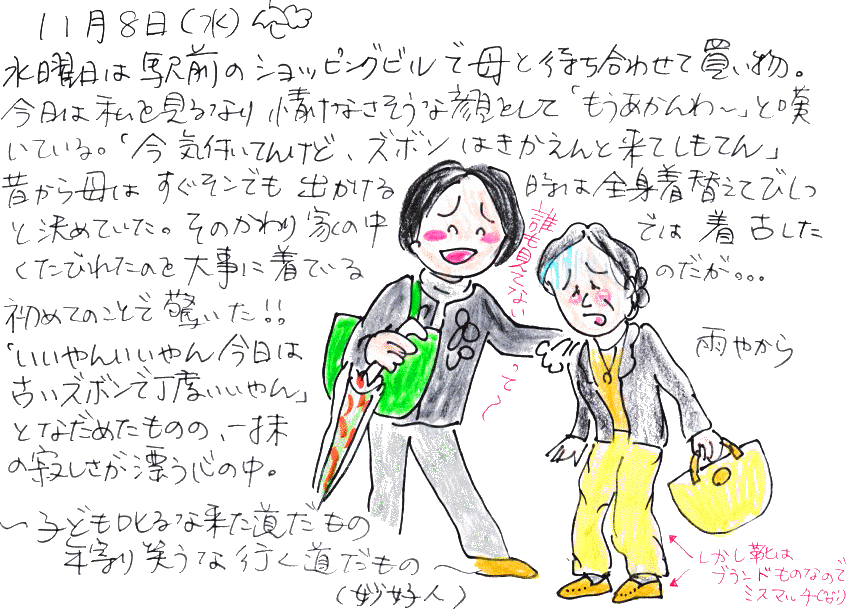 11月8日(水)
水曜日は駅前のショッピングビルで母と待ち合わせて買い物。
今日は私を見るなり情けなさそうな顔をして「もうあかんわ～」と嘆
いている。「今気付いてんけど、ズボンはきかえんと来てしもてん」
昔から母はすぐそこでも出かける時は全身着替えてびしっ
と決めていた。そのかわり家の中では着古した
くたびれたのを大事に着ているのだが。。。
初めてのことで驚いた!!
「いいやんいいやん今日は
古いズボンで丁度いいやん」
となだめたものの、一抹
の寂しさが漂う心の中。
～子ども叱るな来た道だもの
年寄り笑うな行く道だもの～
(妙好人)
誰も見てない
って～
雨やから
しかし靴は
ブランドものなので
ミスマッチ(なり)